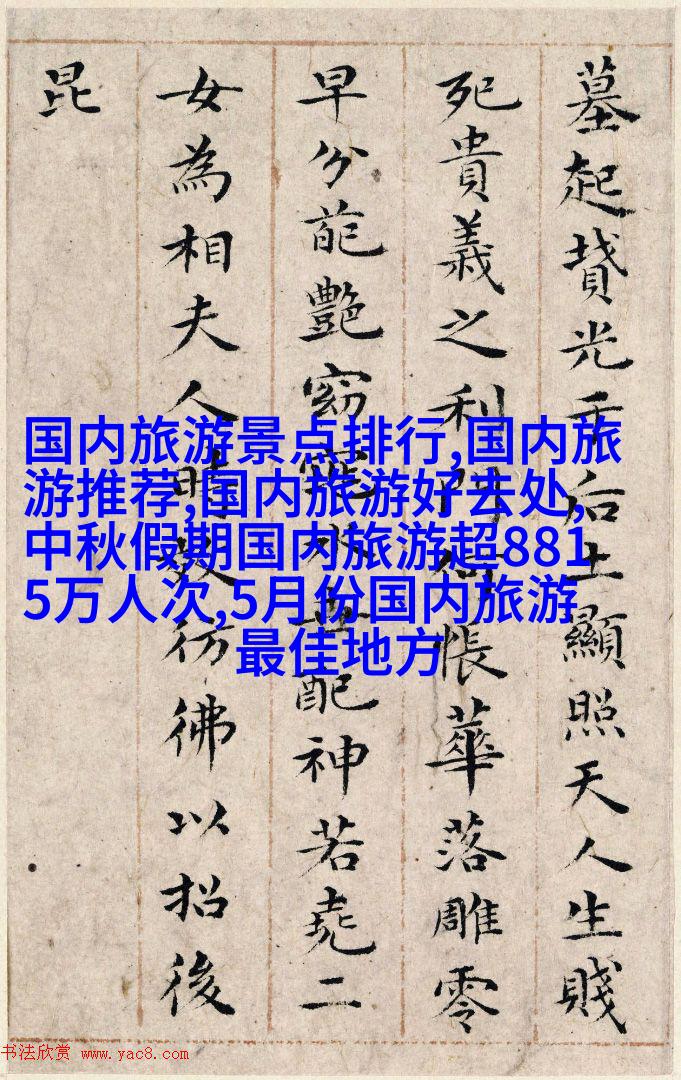 墓起墳光于后土顯照天人生賤
死貴義之利門何悵華落雕零
早分葩艷窈窕永世配神若堯二
女為相夫人時效彷彿以招後
昆
国内旅游景点排行,国内旅
游推荐,国内旅游好去处,
中秋假期国内旅游超881
5万人次,5月份国内旅游
最佳地方
书法欣赏 www.yac8.com